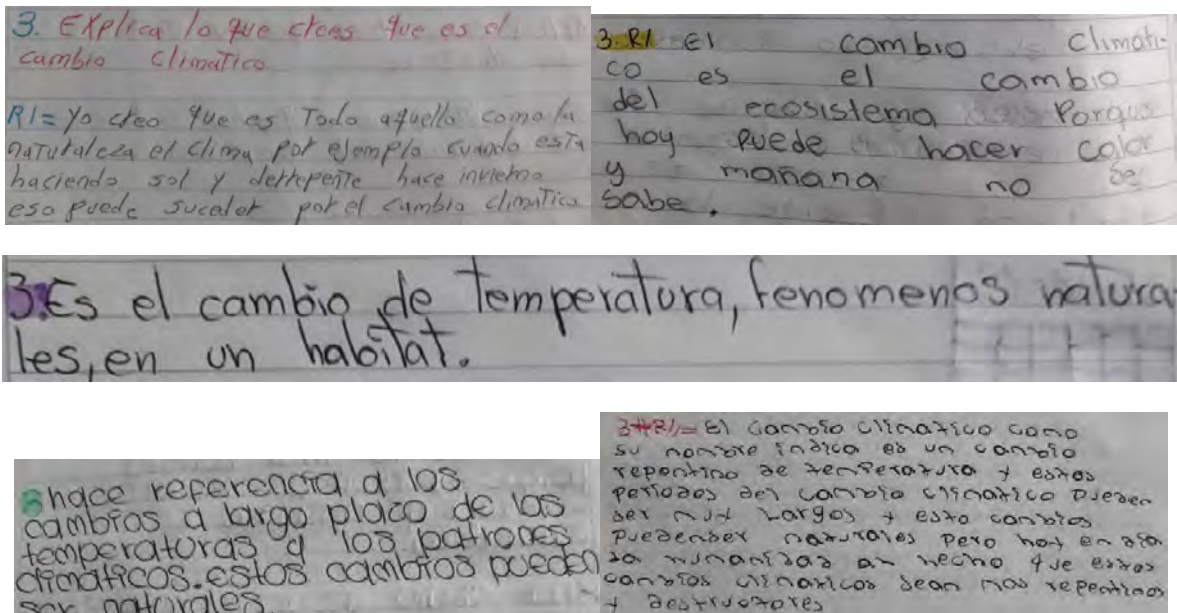 3. Explica lo que crees que es el
cambio climatico
R/= Yo creo que es Todo aquello como la
naturaleza el clima por ejemplo cuando esta
haciendo sol y derrepente hace invierno
eso puede suceder por el cambio climatico
3. R/ El cambio climati-
co es el cambio
del ecosistema Porque
hoy puede hacer calor
y mañana no se
sabe.
3. Es el cambio de temperatura, fenomenos natura
les, en un habitat.
3 hace referencia a los
cambios a largo placo de las
temperaturas y los patrones
climáticos. estos cambios pueden
ser naturales
3#R/= El cambio climatico como
su nombre indica es un cambio
repentino de temperatura y estos
periodos del cambio climatico pueden
ser muy largos y esto cambios
puedenser naturales pero hoy en dia
la humanidad an hecho que estos
cambios climaticos sean mas repentinos
y destructores